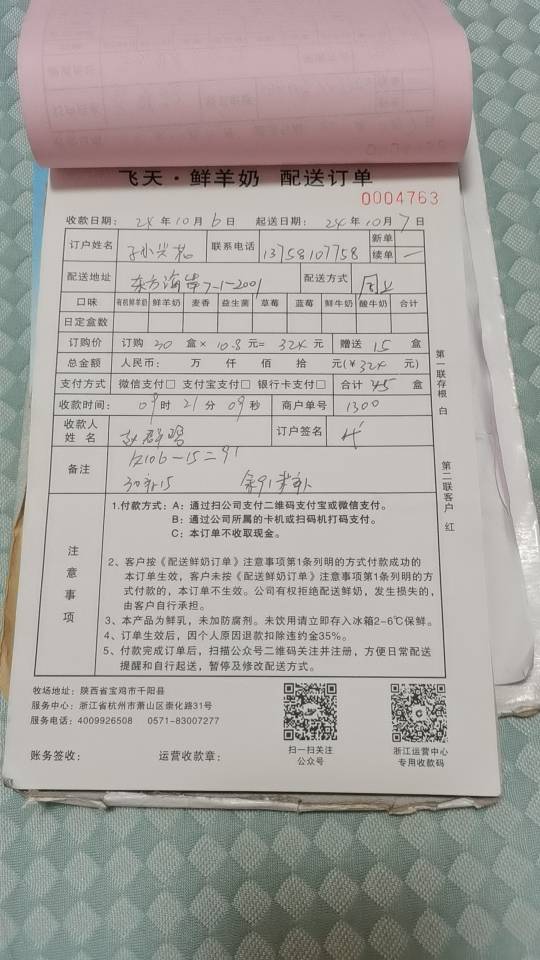 飞天·鲜羊奶 配送订单
0004763
收款日期: 24 年 10 月 6 日 起送日期: 24 年 10 月 7 日
订户姓名 联系电话 13758107758 新单
续单 一
配送地址 东方海岸7-1-2001 配送方式
口味 有机鲜羊奶 鲜羊奶 麦香 益生菌 草莓 蓝莓 鲜牛奶 酸牛奶 合计
日定盒数
订购价 订购 30 盒 × 10.8 元= 324 元 赠送 15 盒
总金额 人民币: 万 仟 佰 拾 元(¥324 元)
支付方式 微信支付□ 支付宝支付□ 银行卡支付□ 合计 45 盒
收款时间: 09 时 21 分 09 秒 商户单号 1300
收款人姓名 订户签名
备注 106-15=91
30 15 余91
第一联存根 白
第二联客户 红
注意事项
1.付款方式: A: 通过扫公司支付二维码支付宝或微信支付。
B: 通过公司所属的卡机或扫码机打码支付。
C: 本订单不收取现金。
2、客户按《配送鲜奶订单》注意事项第1条列明的方式付款成功的
本订单生效,客户未按《配送鲜奶订单》注意事项第1条列明的方
式付款的,本订单不生效。公司有权拒绝配送鲜奶,发生损失的,
由客户自行承担。
3、本产品为鲜乳,未加防腐剂。未饮用请立即存入冰箱2-6℃保鲜。
4、订单生效后,因个人原因退款扣除违约金35%。
5、付款完成订单后,扫描公众号二维码关注并注册,方便日常配送
提醒和自行起送,暂停及修改配送方式。
牧场地址: 陕西省宝鸡市千阳县
服务中心: 浙江省杭州市萧山区崇化路31号
服务电话: 4009926508 0571-83007277
扫一扫关注
公众号
浙江运营中心
专用收款码
账务签收: 运营收款章: